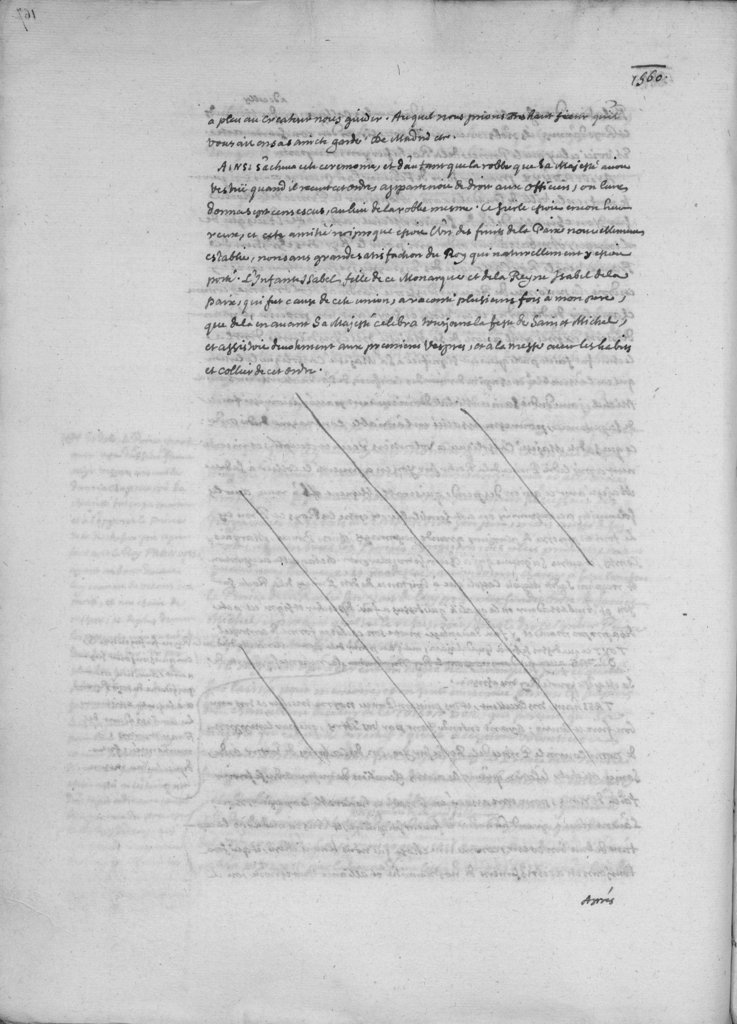 167
1560.
a pleu au createur nous guider. Auquel nous prions treshaut sieur qu'il
vous ait en sa saincte garde. De Madrid etc.
AINSI s'acheva cete ceremonie, et d'autant que la robbe que Sa Majesté avoit
vestue quand il receut cet ordre, appartenoit de droit aux officiers, on leur
donna sept cens escus, au lieu de la robbe mesme. Ce siecle estoit encor heu
reux, et cete amitié reciproque estoit l'un des fruits de la Paix nouvellement
establie, non sans grande satisfaction du Roy qui naturellement y estoit
porté. L'Infante Isabel, fille de ce Monarque et de la Reyne Isabel de la
Paix, qui fut cause de cete union, a raconté plusieurs fois à mon pere,
que delà en avant Sa Majesté celebra tousjours la feste de Sainct Michel,
et assistoit devotement aux premieres Vespres, et à la messe avec les habits
et collier de cet ordre.
Aprés